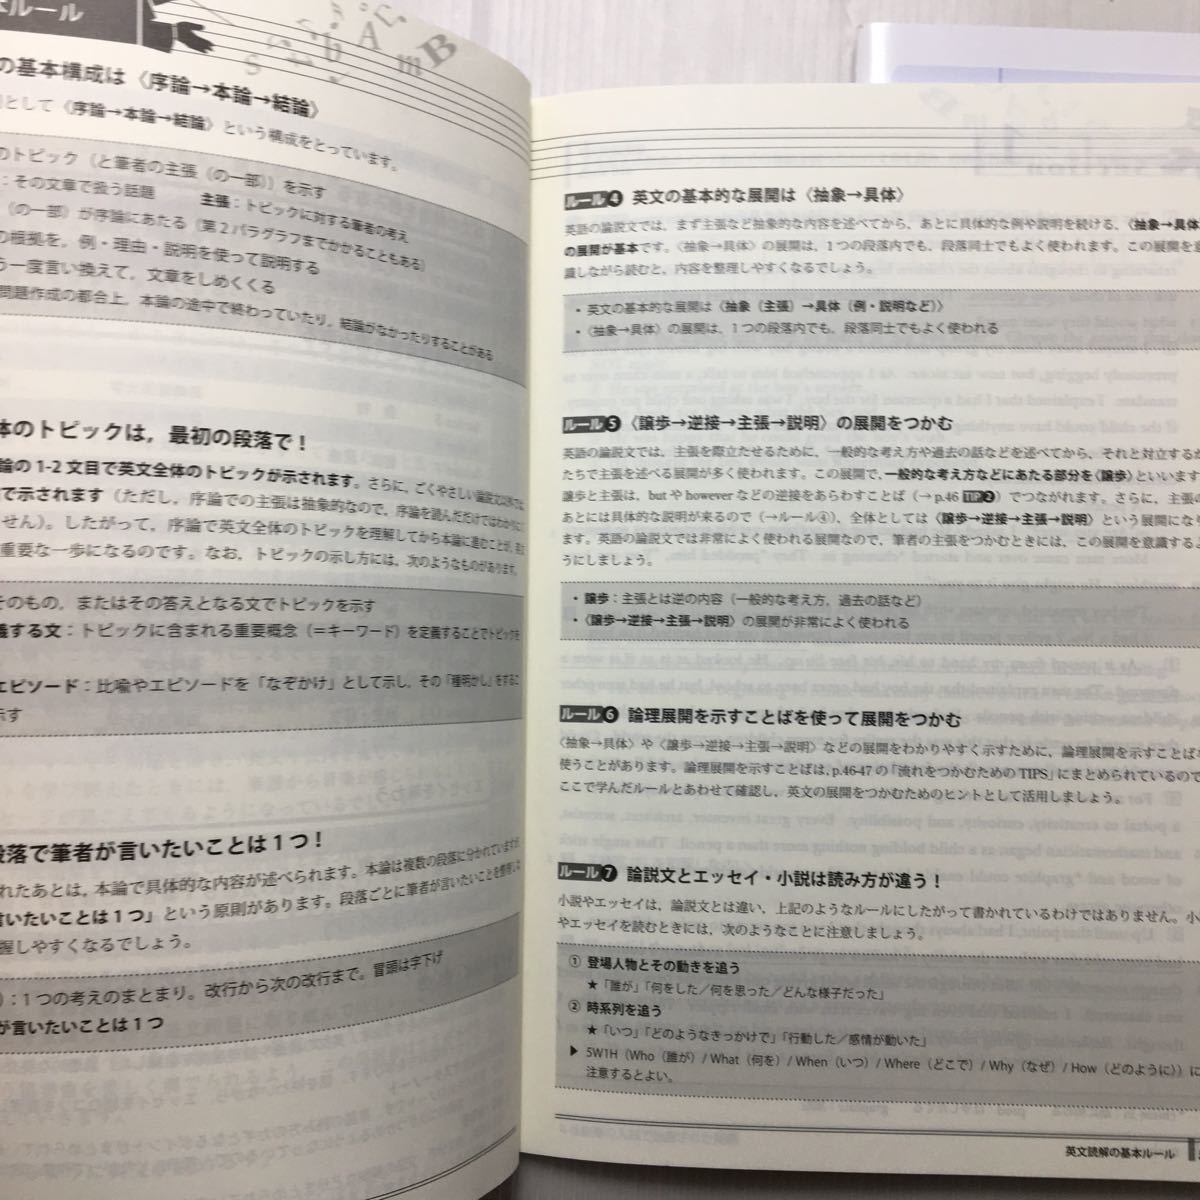 本ルール
の基本構成は〈序論→本論→結論〉
として〈序論→本論→結論〉という構成をとっています。
のトピック（と筆者の主張（の一部））を示す
：その文章で扱う話題　主張：トピックに対する筆者の考え
（の一部）が序論にあたる（第2パラグラフまでかかることもある）
の根拠を，例・理由・説明を使って説明する
う一度言い換えて，文章をしめくくる
問題作成の都合上，本論の途中で終わっていたり，結論がなかったりすることがある
体のトピックは，最初の段落で！
論の1-2文目で英文全体のトピックが示されます。さらに，ごくやさしい論説文以外では
で示されます（ただし，序論での主張は抽象的なので，序論を読んだだけではわかり
せん）。したがって，序論で英文全体のトピックを理解してから本論に進むことが，
重要な一歩になるのです。なお，トピックの示し方には，次のようなものがあります。
そのもの，またはその答えとなる文でトピックを示す
義する文：トピックに含まれる重要概念（＝キーワード）を定義することでトピックを
エピソード：比喩やエピソードを「なぞかけ」として示し，その「種明かし」をするこ
示す
段落で筆者が言いたいことは1つ！
れたあとは，本論で具体的な内容が述べられます。本論は複数の段落に分かれていますが
言いたいことは1つ」という原則があります。段落ごとに筆者が言いたいことを整理しな
握しやすくなるでしょう。
）：1つの考えのまとまり。改行から次の改行まで。冒頭は字下げ
が言いたいことは1つ
ルール④ 英文の基本的な展開は〈抽象→具体〉
英語の論説文では，まず主張など抽象的な内容を述べてから，あとに具体的な例や説明を続ける，〈抽象→具体
の展開が基本です。〈抽象→具体〉の展開は，1つの段落内でも，段落同士でもよく使われます。この展開を意
識しながら読むと，内容を整理しやすくなるでしょう。
・英文の基本的な展開は〈抽象（主張）→具体（例・説明など）〉
・〈抽象→具体〉の展開は，1つの段落内でも，段落同士でもよく使われる
ルール⑤〈譲歩→逆接→主張→説明〉の展開をつかむ
英語の論説文では，主張を際立たせるために，一般的な考え方や過去の話などを述べてから，それと対立するか
たちで主張を述べる展開が多く使われます。この展開で，一般的な考え方などにあたる部分を〈譲歩〉といいます
譲歩と主張は，butやhoweverなどの逆接をあらわすことば（→p.46 TIP②）でつながれます。さらに，主張の
あとには具体的な説明が来るので（→ルール④），全体としては〈譲歩→逆接→主張→説明〉という展開になり
ます。英語の論説文では非常によく使われる展開なので，筆者の主張をつかむときには，この展開を意識するよ
うにしましょう。
・譲歩：主張とは逆の内容（一般的な考え方，過去の話など）
・〈譲歩→逆接→主張→説明〉の展開が非常によく使われる
ルール⑥ 論理展開を示すことばを使って展開をつかむ
〈抽象→具体〉や〈譲歩→逆接→主張→説明〉などの展開をわかりやすく示すために，論理展開を示すことばを
使うことがあります。論理展開を示すことばは，p.46-47の「流れをつかむためのTIPS」にまとめられているので
ここで学んだルールとあわせて確認し，英文の展開をつかむためのヒントとして活用しましょう。
ルール⑦ 論説文とエッセイ・小説は読み方が違う！
小説やエッセイは，論説文とは違い，上記のようなルールにしたがって書かれているわけではありません。小
やエッセイを読むときには，次のようなことに注意しましょう。
① 登場人物とその動きを追う
★「誰が」「何をした／何を思った／どんな様子だった」
② 時系列を追う
★「いつ」「どのようなきっかけで」「行動した／感情が動いた」
▶ 5W1H（Who（誰が）/ What（何を）/ When（いつ）/ Where（どこで）/ Why（なぜ）/ How（どのように））に
注意するとよい。
英文読解の基本ルール